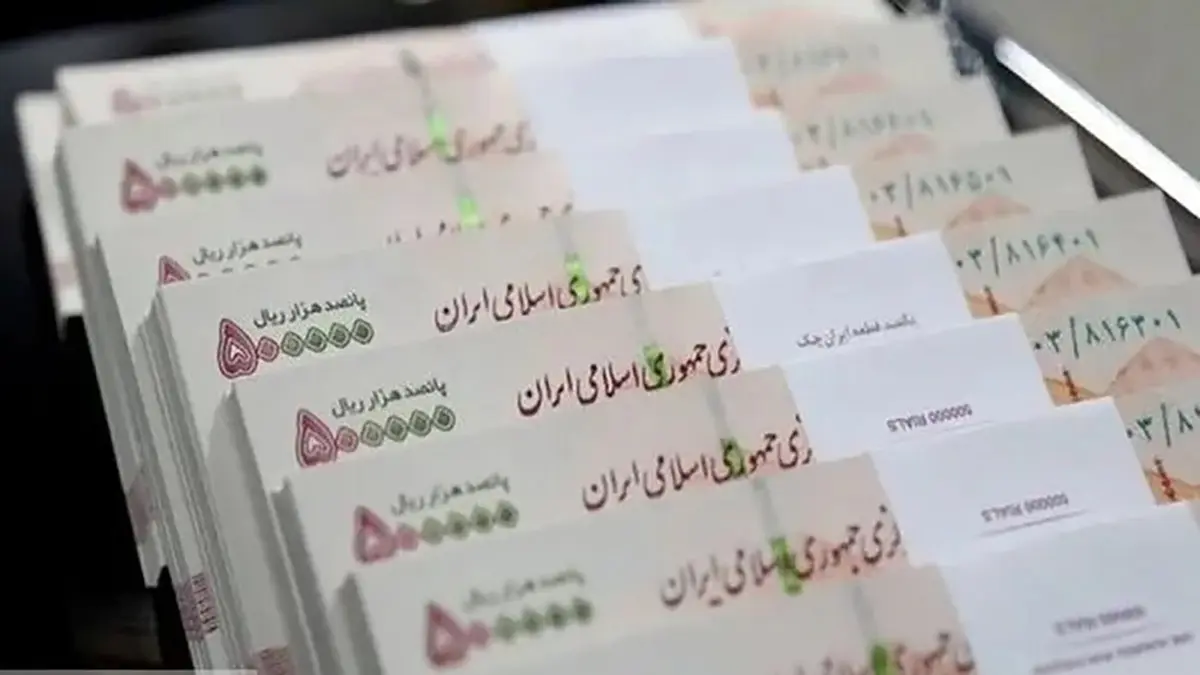 پانصد هزار ریال
۵۰۰۰۰۰
جمهوری اسلامی ایران
۰۳/۸۱۶۵۰۱
پانصد هزار ریال
۰۳/۸۱۶۴۰۱
پانصد هزار ریال
۵۰۰۰۰۰
جمهوری اسلامی ایران
پانصد قطعه ایران چک
۰۳/۸۱۶۳۰۱
پانصد هزار ریال
۵۰۰۰۰۰
زی جمهوری اسلامی ایران
500000 RIALS
پانصد هزار ریال
۵۰۰۰۰۰
زی جمهوری اسلامی ایران
500000 RIALS
پانصد هزار ریال
۵۰۰۰۰۰
زی جمهوری اسلامی ایران
500000 RIALS